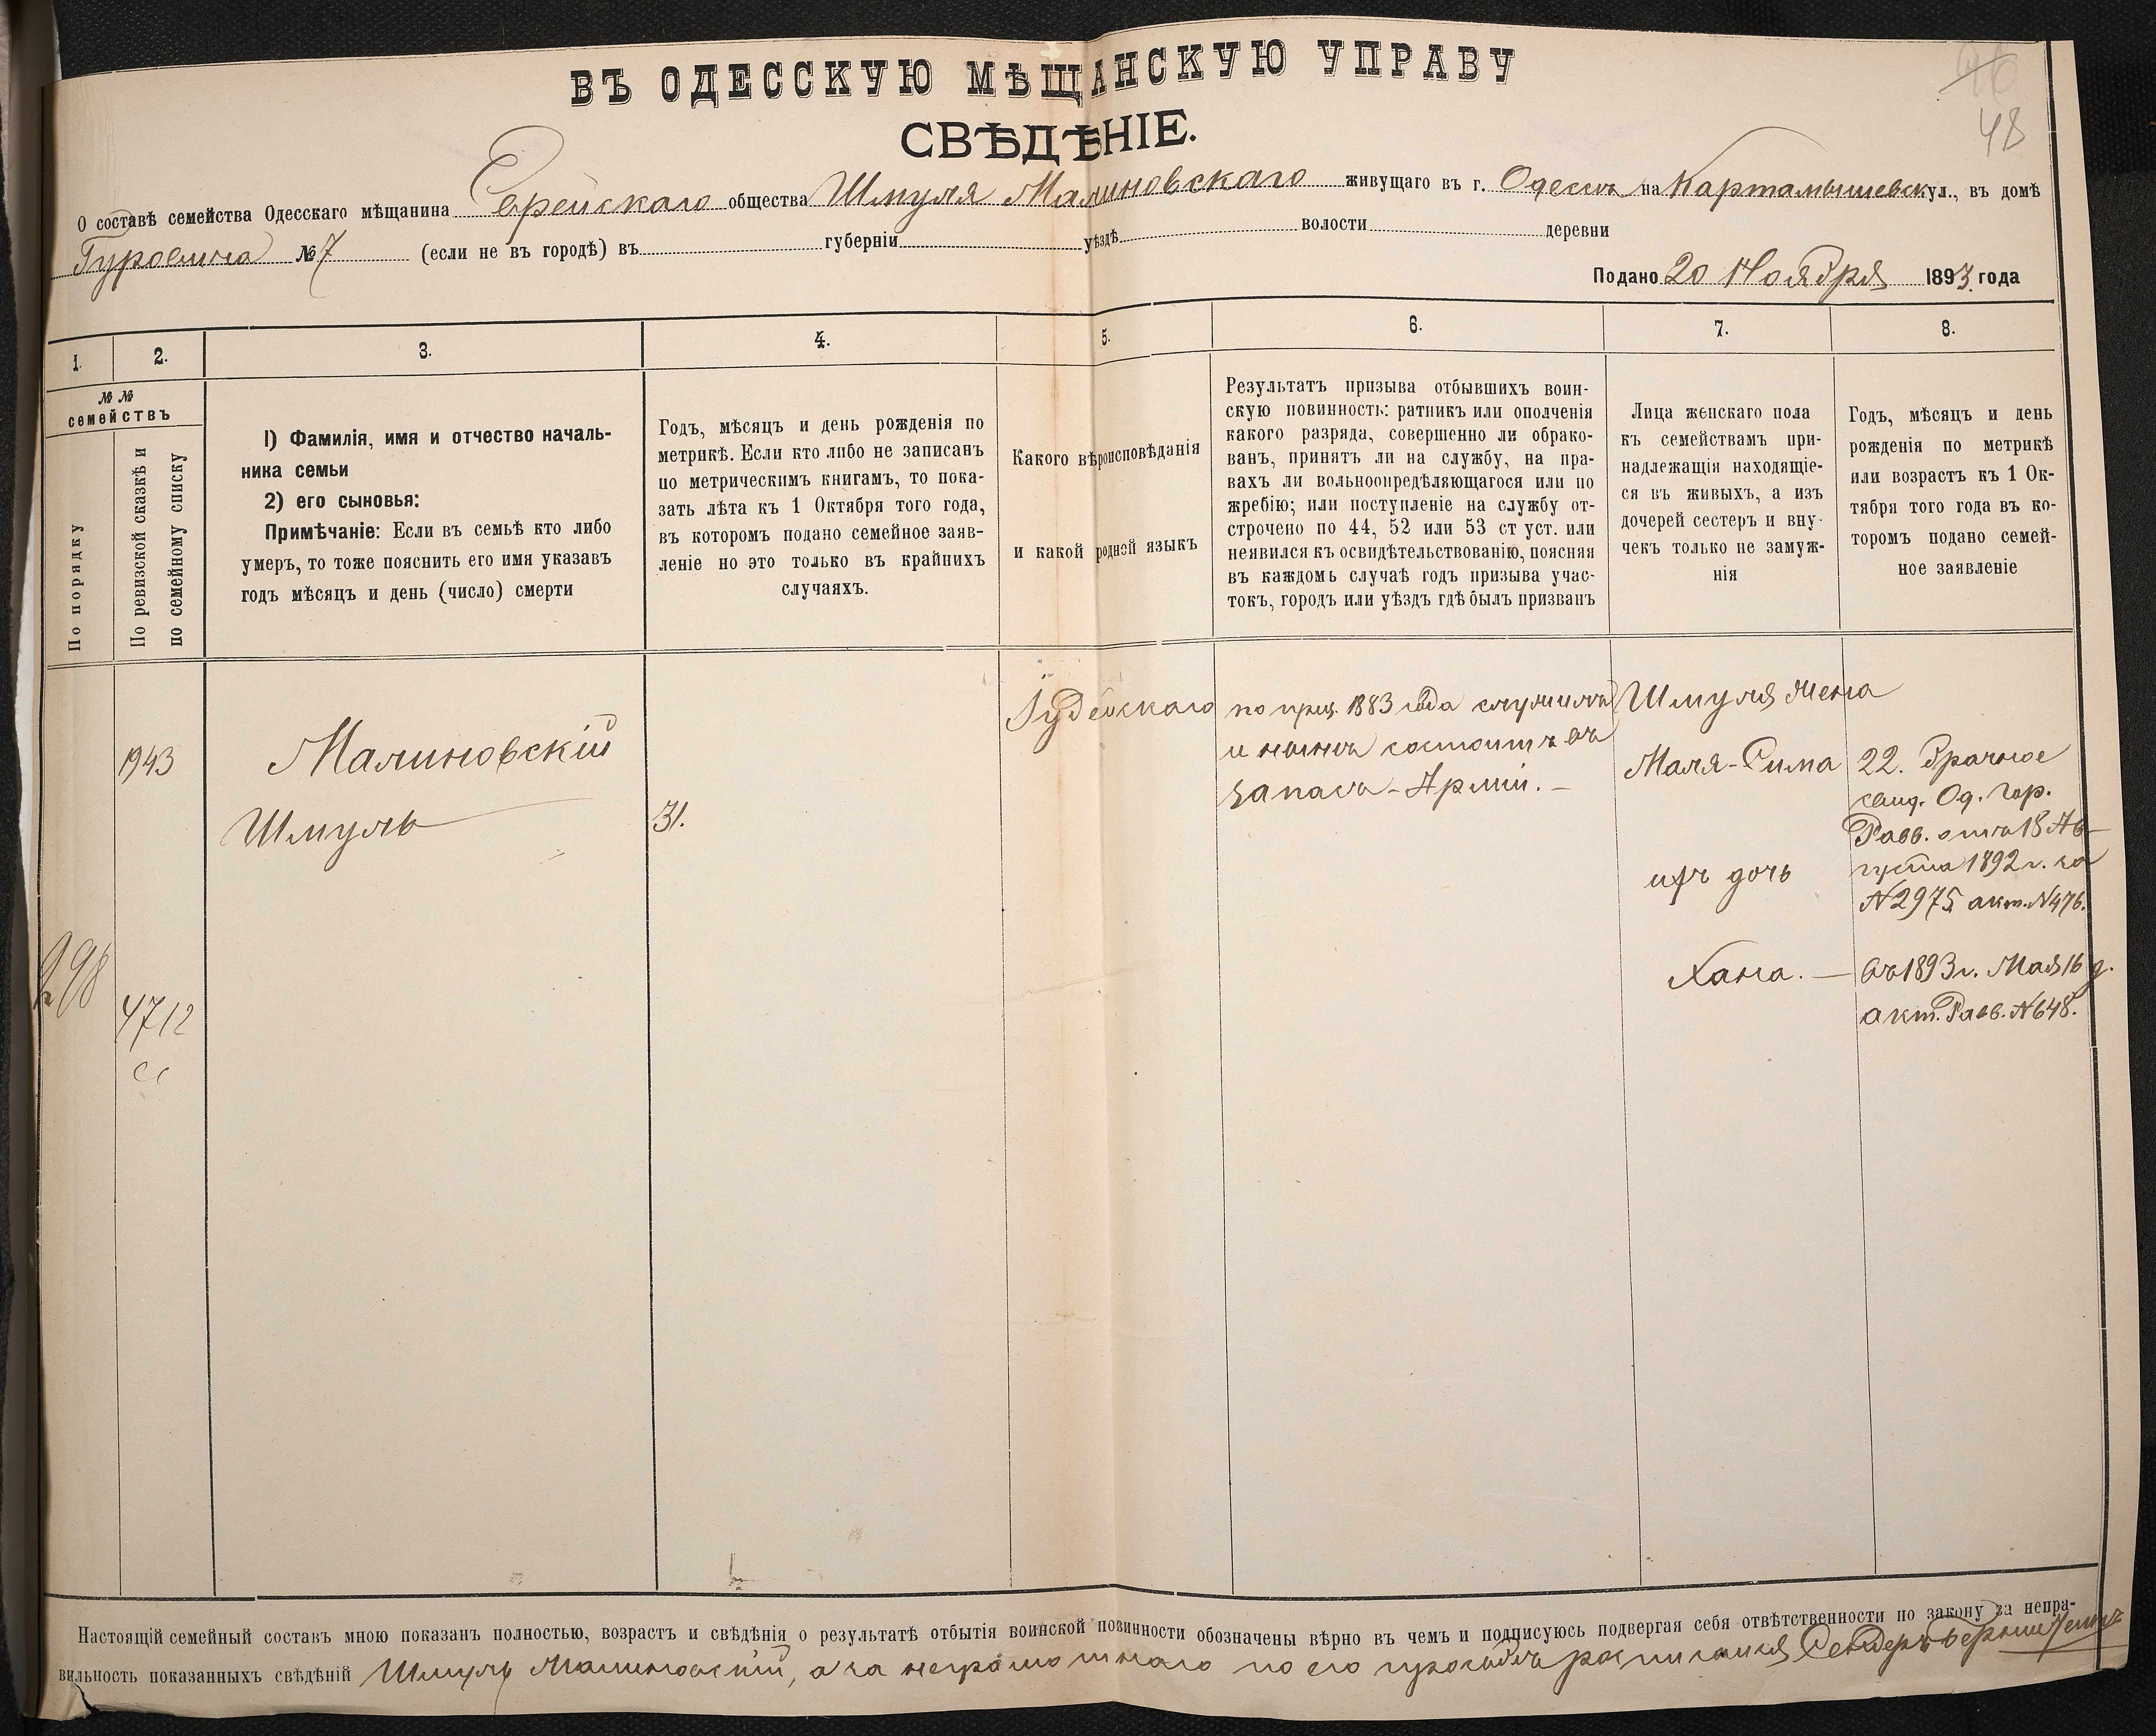 ВЪ ОДЕССКУЮ МѢЩАНСКУЮ УПРАВУ
48
СВѢДѢНІЕ.
О составѣ семейства Одесскаго мѣщанина Еврейскаго общества Шмуля Малиновскаго живущаго въ г. Одессѣ на Картамышевск ул., въ домѣ
Гуровича № 7 (если не въ городѣ) въ губерніи уѣздѣ волости деревни
Подано 20 Ноября 1893 года
1. 2. 3. 4. 5. 6. 7. 8.
№ №
семействъ
По порядку
По ревизской сказкѣ и
по семейному списку
1) Фамилія, имя и отчество началь-
ника семьи
2) его сыновья:
Примѣчаніе: Если въ семьѣ кто либо
умеръ, то тоже пояснить его имя указавъ
годъ мѣсяцъ и день (число) смерти
Годъ, мѣсяцъ и день рожденія по
метрикѣ. Если кто либо не записанъ
по метрическимъ книгамъ, то пока-
зать лѣта къ 1 Октября того года,
въ которомъ подано семейное заяв-
леніе но это только въ крайнихъ
случаяхъ.
Какого вѣроисповѣданія
и какой родной языкъ
Результатъ призыва отбывшихъ воин-
скую повинность: ратникъ или ополченія
какого разряда, совершенно ли обрако-
ванъ, принятъ ли на службу, на пра-
вахъ ли вольноопредѣляющагося или по
жребію; или поступленіе на службу от-
строчено по 44, 52 или 53 ст уст. или
неявился къ освидѣтельствованію, поясняя
въ каждомъ случаѣ годъ призыва учас-
токъ, городъ или уѣздъ гдѣ былъ призванъ
Лица женскаго пола
къ семействамъ при-
надлежащія находящіе-
ся въ живыхъ, а изъ
дочерей сестеръ и вну-
чекъ только не замуж-
нія
Годъ, мѣсяцъ и день
рожденія по метрикѣ
или возрастъ къ 1 Ок-
тября того года въ ко-
торомъ подано семей-
ное заявленіе
1943
298
4712
Малиновскій
Шмуль
31.
Іудейскаго
по приз. 1883 года служилъ
и нынѣ состоитъ въ
запасѣ Арміи.
Шмуля жена
Маля-Сима
ихъ дочь
Хана. —
22. Брачное
свид. Од. Гор.
Равв. отъ 18 Ав-
густа 1892 г. за
N 2975 акт. N 476.
въ 1893 г. Мая 16 д.
акт. Равв. N 648.
Настоящій семейный составъ мною показанъ полностью, возрастъ и свѣдѣнія о результатѣ отбытія воинской повинности обозначены вѣрно въ чемъ и подписуюсь подвергая себя отвѣтственности по закону за непра-
вильность показанныхъ свѣдѣній Шмуль Малиновскій, а за неграмотнаго по его просьбѣ росписался Сендеръ